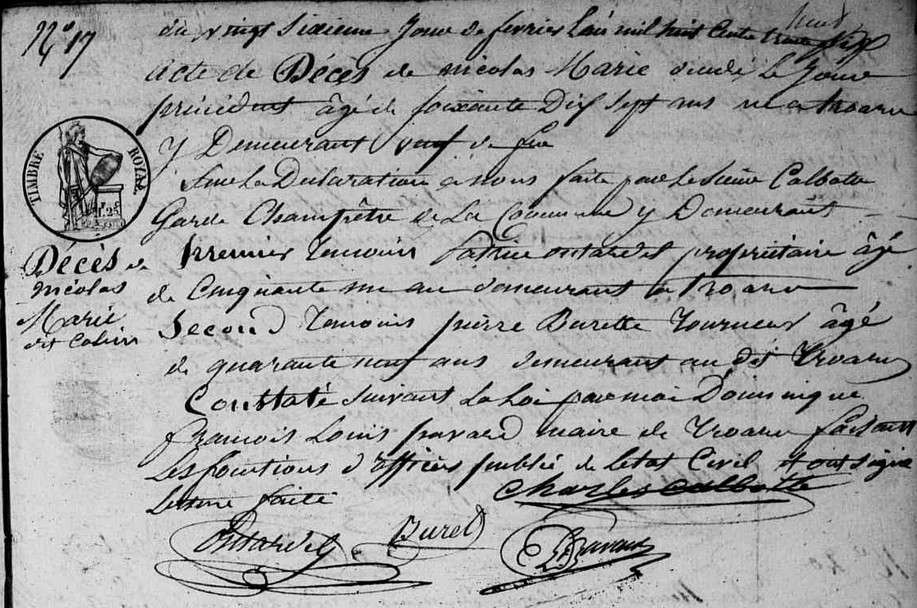 N° 17
du vingt sixieme Jour de fevrier Lan mil huit Cents trente huit
acte de Décès de nicolas Marie decedé Le Jour
précédent âgé de soixante Dix sept ans né a troarn
y Demeurant veuf de feue
Sur La Declaration a nous faite par Le Sieur Calbate
Garde Champêtre de La Commune y Demeurant
premier temoin Patrice ontardel propriétaire âgé
de Cinquante un an demeurant a troarn
Second Temoin pierre Burette Tourneur âgé
de quarante neuf ans demeurant au dit Troarn
Constaté Suivant La Loi par moi Dominique
francois Louis pavard maire de Troarn faisant
Les fonctions d'officier public de Letat Civil et ont signé
Lecture faite
Charles Calbatte
ontardel
Burel
TIMBRE ROYAL
25
Décès de
nicolas
Marie
dit Colin